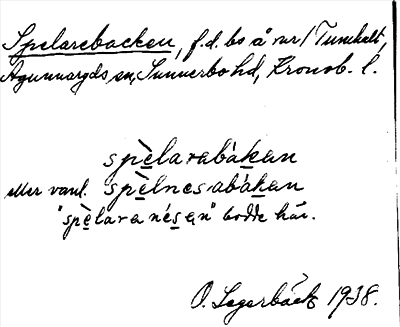 Spelarebacken, f.d. bs å rar / Tunhult,
Agunnaryds sn, Sunnerbo hd, Kronob. l.
spèlarabàkan
eller vanl. spèlnesabàkan
"spèlara nésan" bodde här.
O. Lagerbäck 1938.